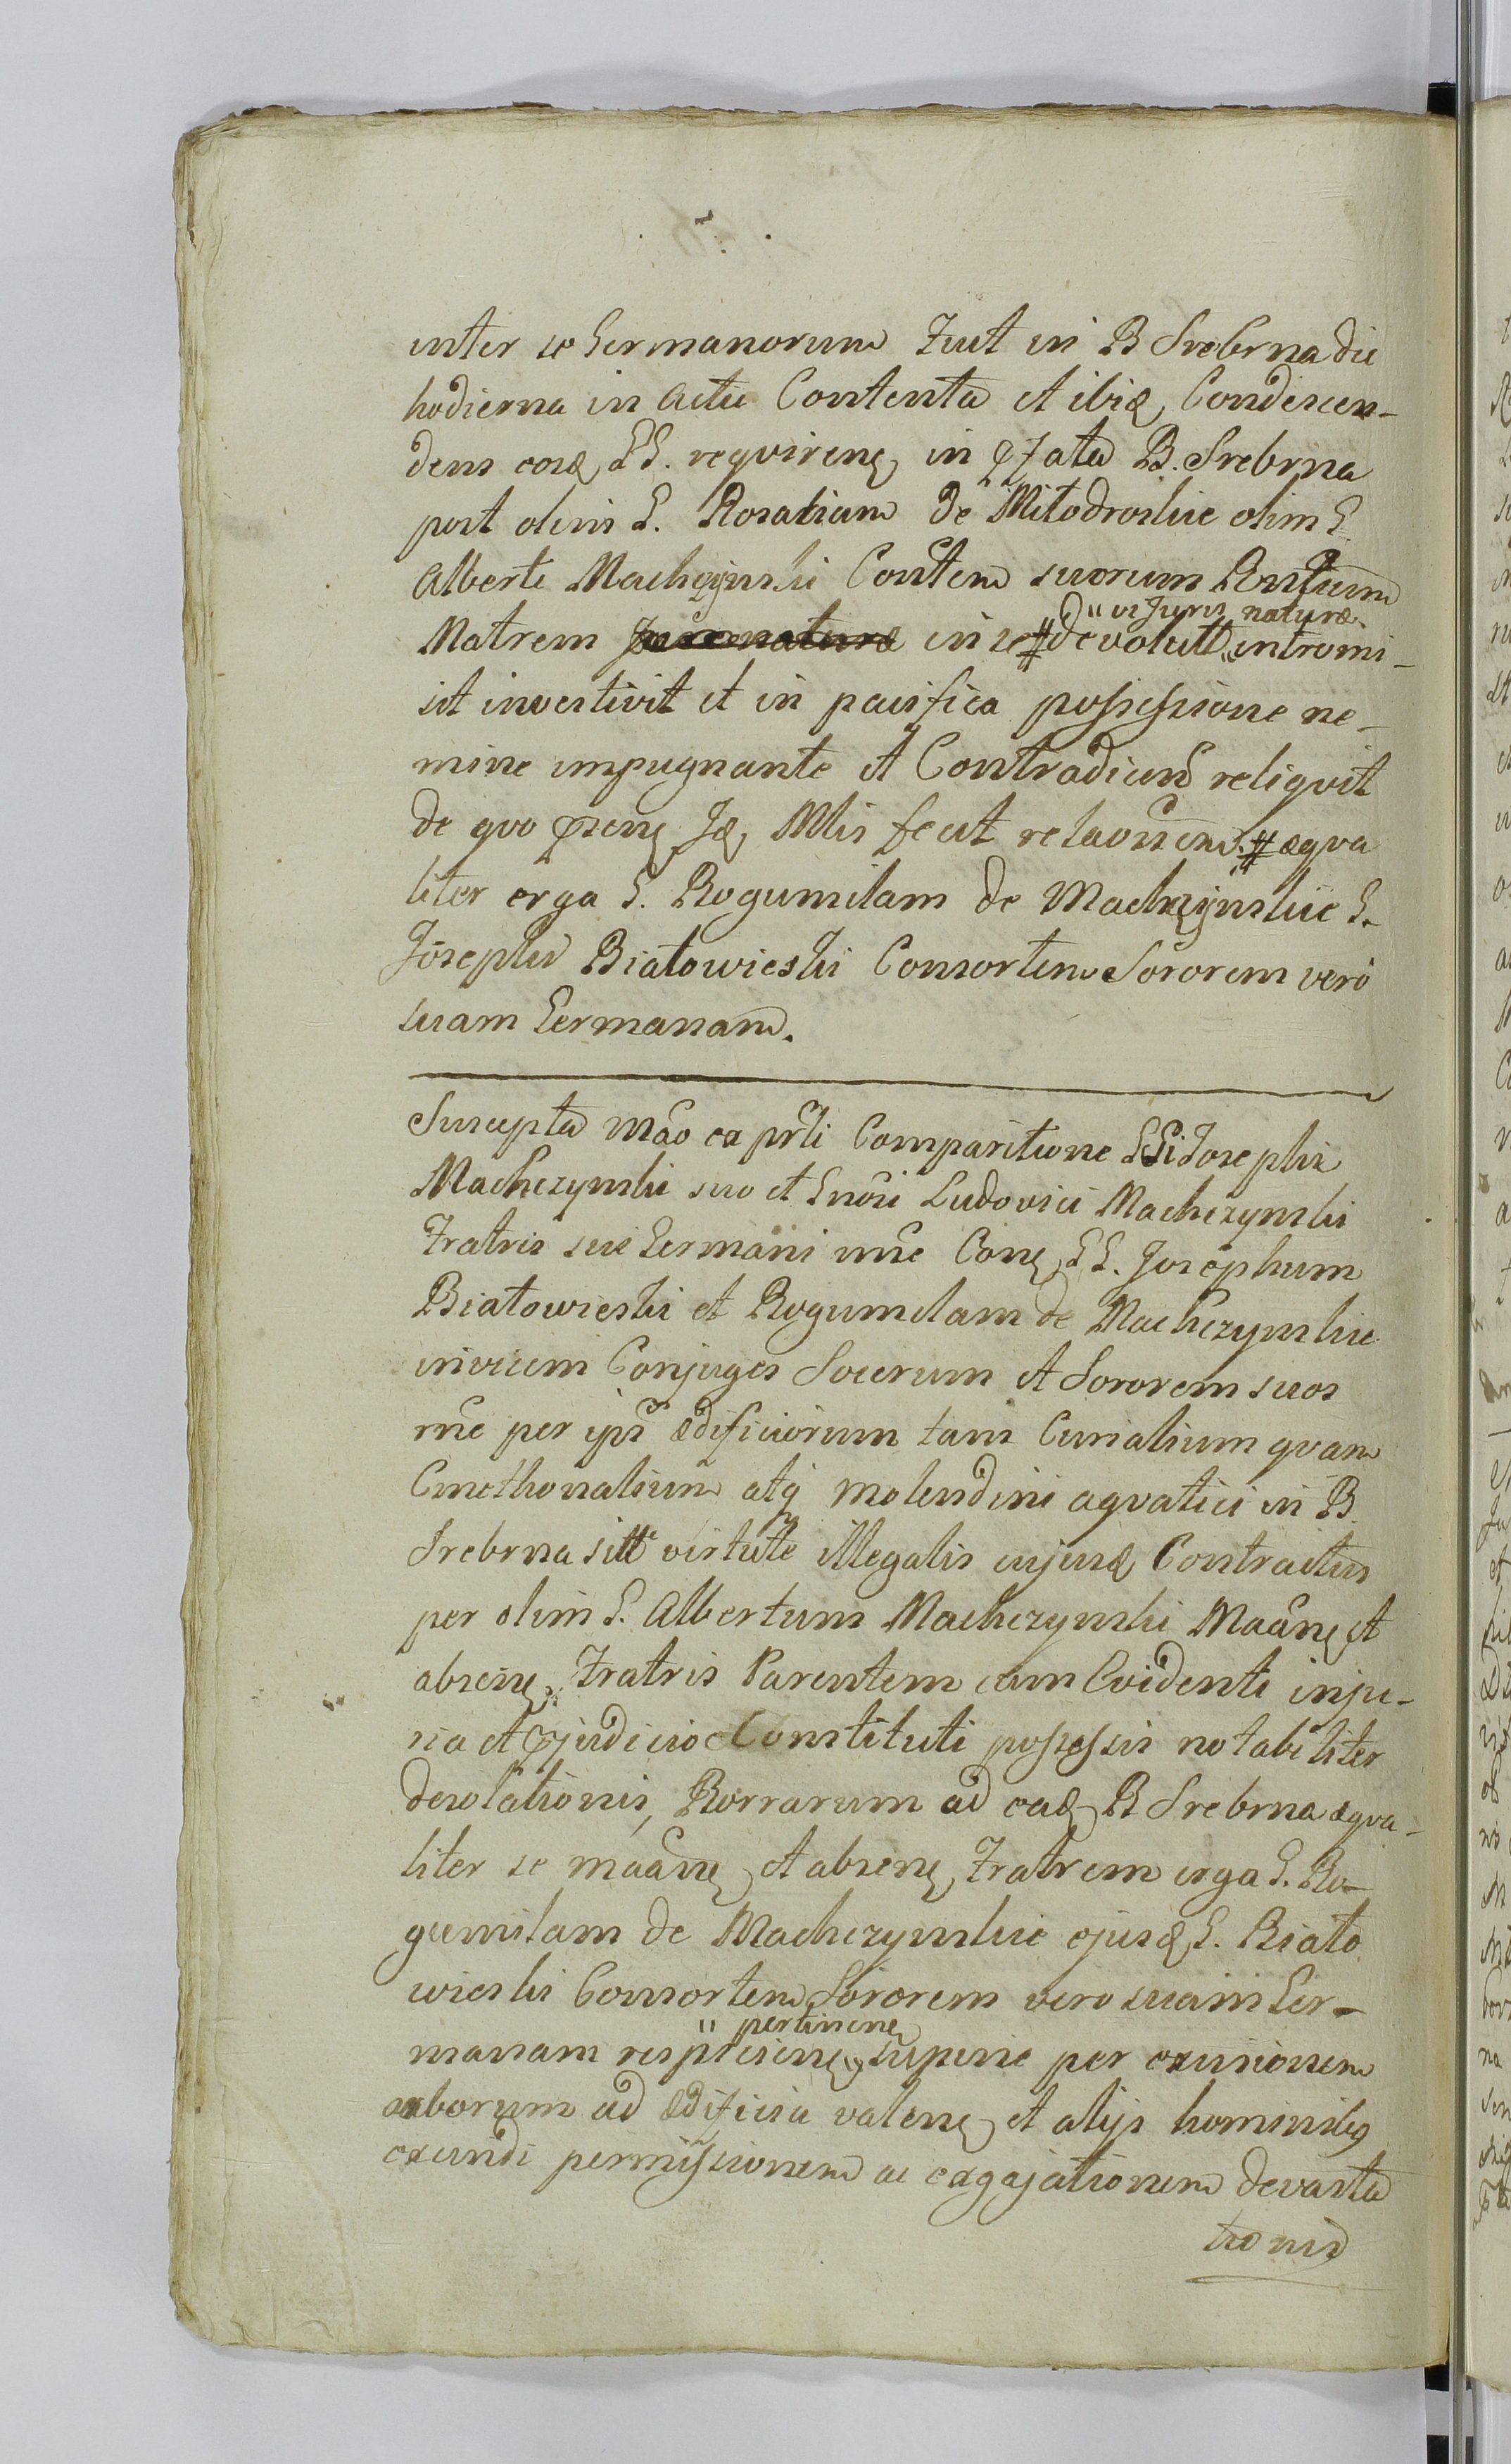 inter se Germanorum Fuit in B Srebrna die
hodierna in actu Contenta et ibiq, Condescen-
dens eosq, GG. requirens, in pfata B. Srebrna
post olim G. Rosaliam de Miłodroskie olim G.
Alberti Machczynski Contem suorum Rntum
vi Juris naturæ
Matrem Jure naturæ in se # devolutt, intromi-
sit investivit et in pacifica possessione ne-
mine impugnante et Contradicen reliquit
de quo psens Jd, Mlis fecit relaonem. # æqva
liter erga G. Bogumilam de Machczynskie G.
Josephi Białowieski Consortem Sororem vero
suam Germanam.
Suscepta Mao ea prli Comparitione GGi Josephi
Machczynski suo et Gnosi Ludovici Machczynski
Fratris sui Germani nne Cons, GG. Josephum
Białowieski et Bogumilam de Machczynskie
invicem Conjuges Socerum et Sororem suos
nne per ips ædificiorum tam Curialium qvam
Cmethonalium atq molendini aqvatici in B.
Srebrna sitt virtute illegalis cujusd, Contractus
per olim G. Albertum Machczynski Maans, et
absens, Fratris Parentem cum Evidenti inju-
ria et pjudicio Constituti possessis notabiliter
desolationis, Borrarum ad eadq B Srebrna æqva-
liter se maans, et absens, Fratrem erga G. Bo-
gumilam de Machczynskie ejusd, G. Biało
wieski Consortem Sororem vero suam Ger-
" pertinens
manam respiciens, supine per excisionem
arborum ad ædificia valens, et alijs hominibq
exundi permissionem ac exgajationem devasta
tionis